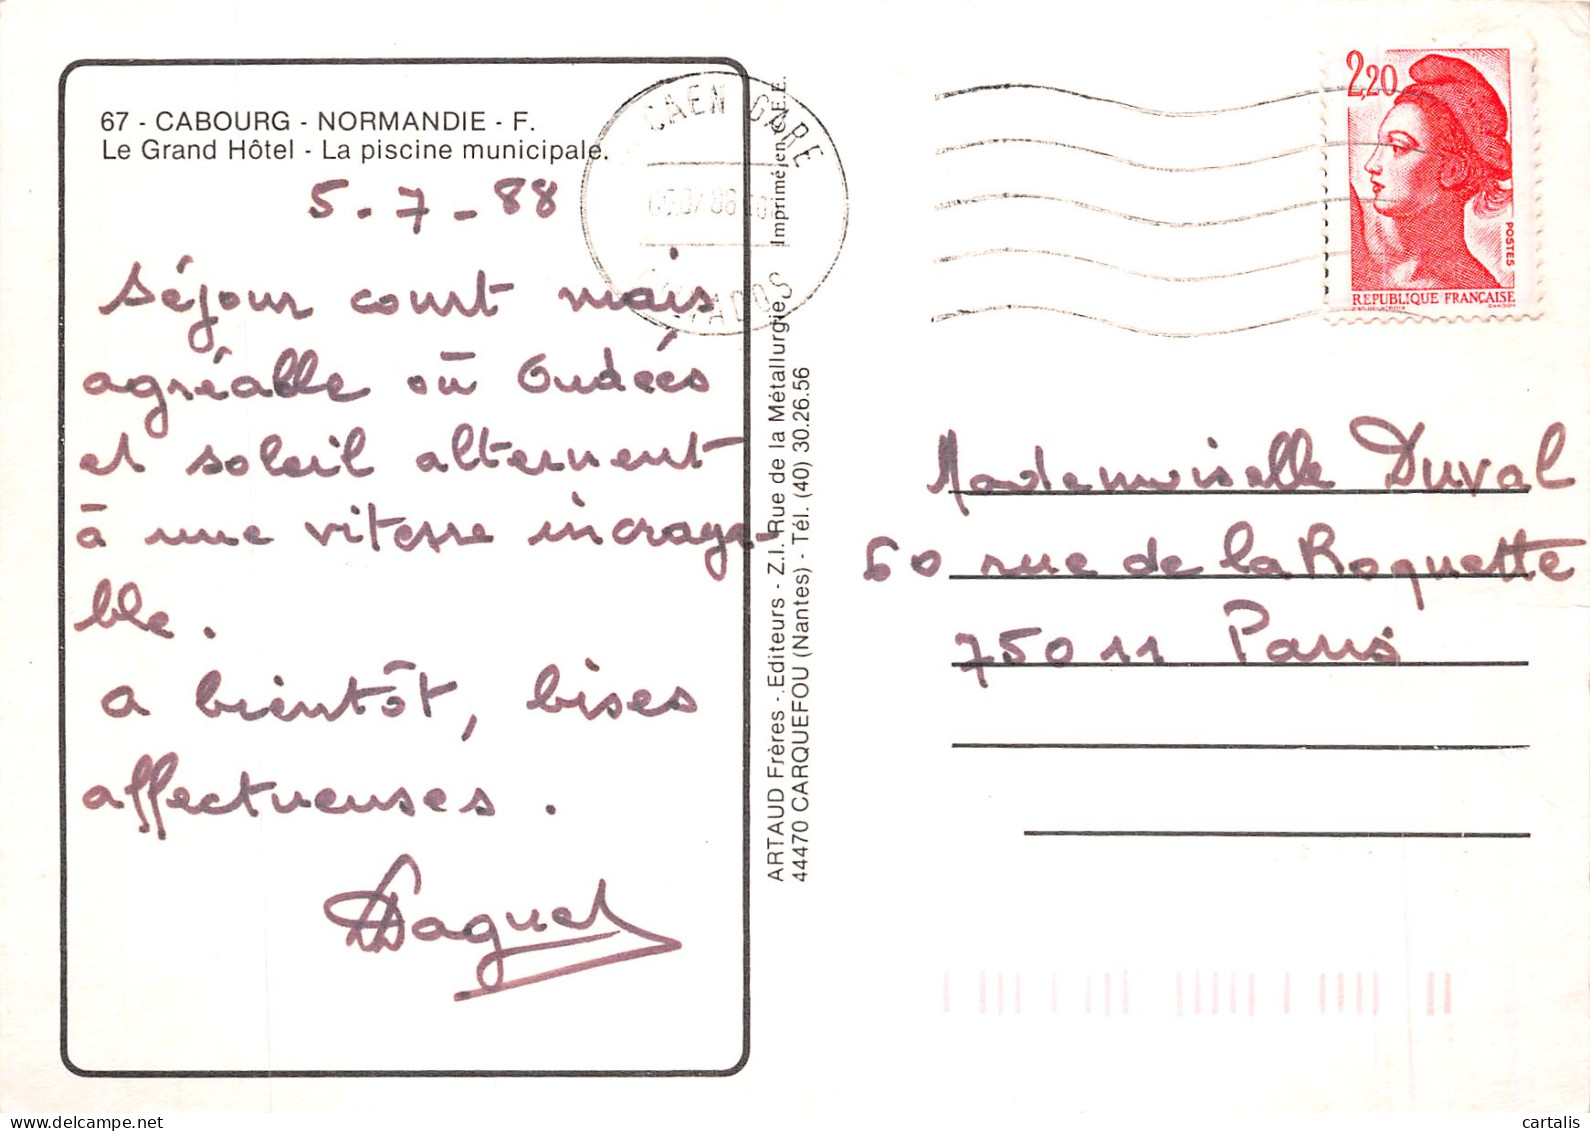 67 - CABOURG - NORMANDIE - F.
Le Grand Hôtel - La piscine municipale.
5-7-88
Séjour court mais
agréable où Ondées
et soleil alternent
à une vitesse incroya-
ble.
A bientôt, bises
affectueuses.
CAEN GARE
CALVADOS
Imprimé en C.E.E.
ARTAUD Frères - Editeurs - Z.I. Rue de la Métallurgie
44470 CARQUEFOU (Nantes) - Tél. (40) 30.26.56
2,20
POSTES
REPUBLIQUE FRANÇAISE
Mademoiselle Duval
60 rue de la Roquette
75011 Paris
cartalis